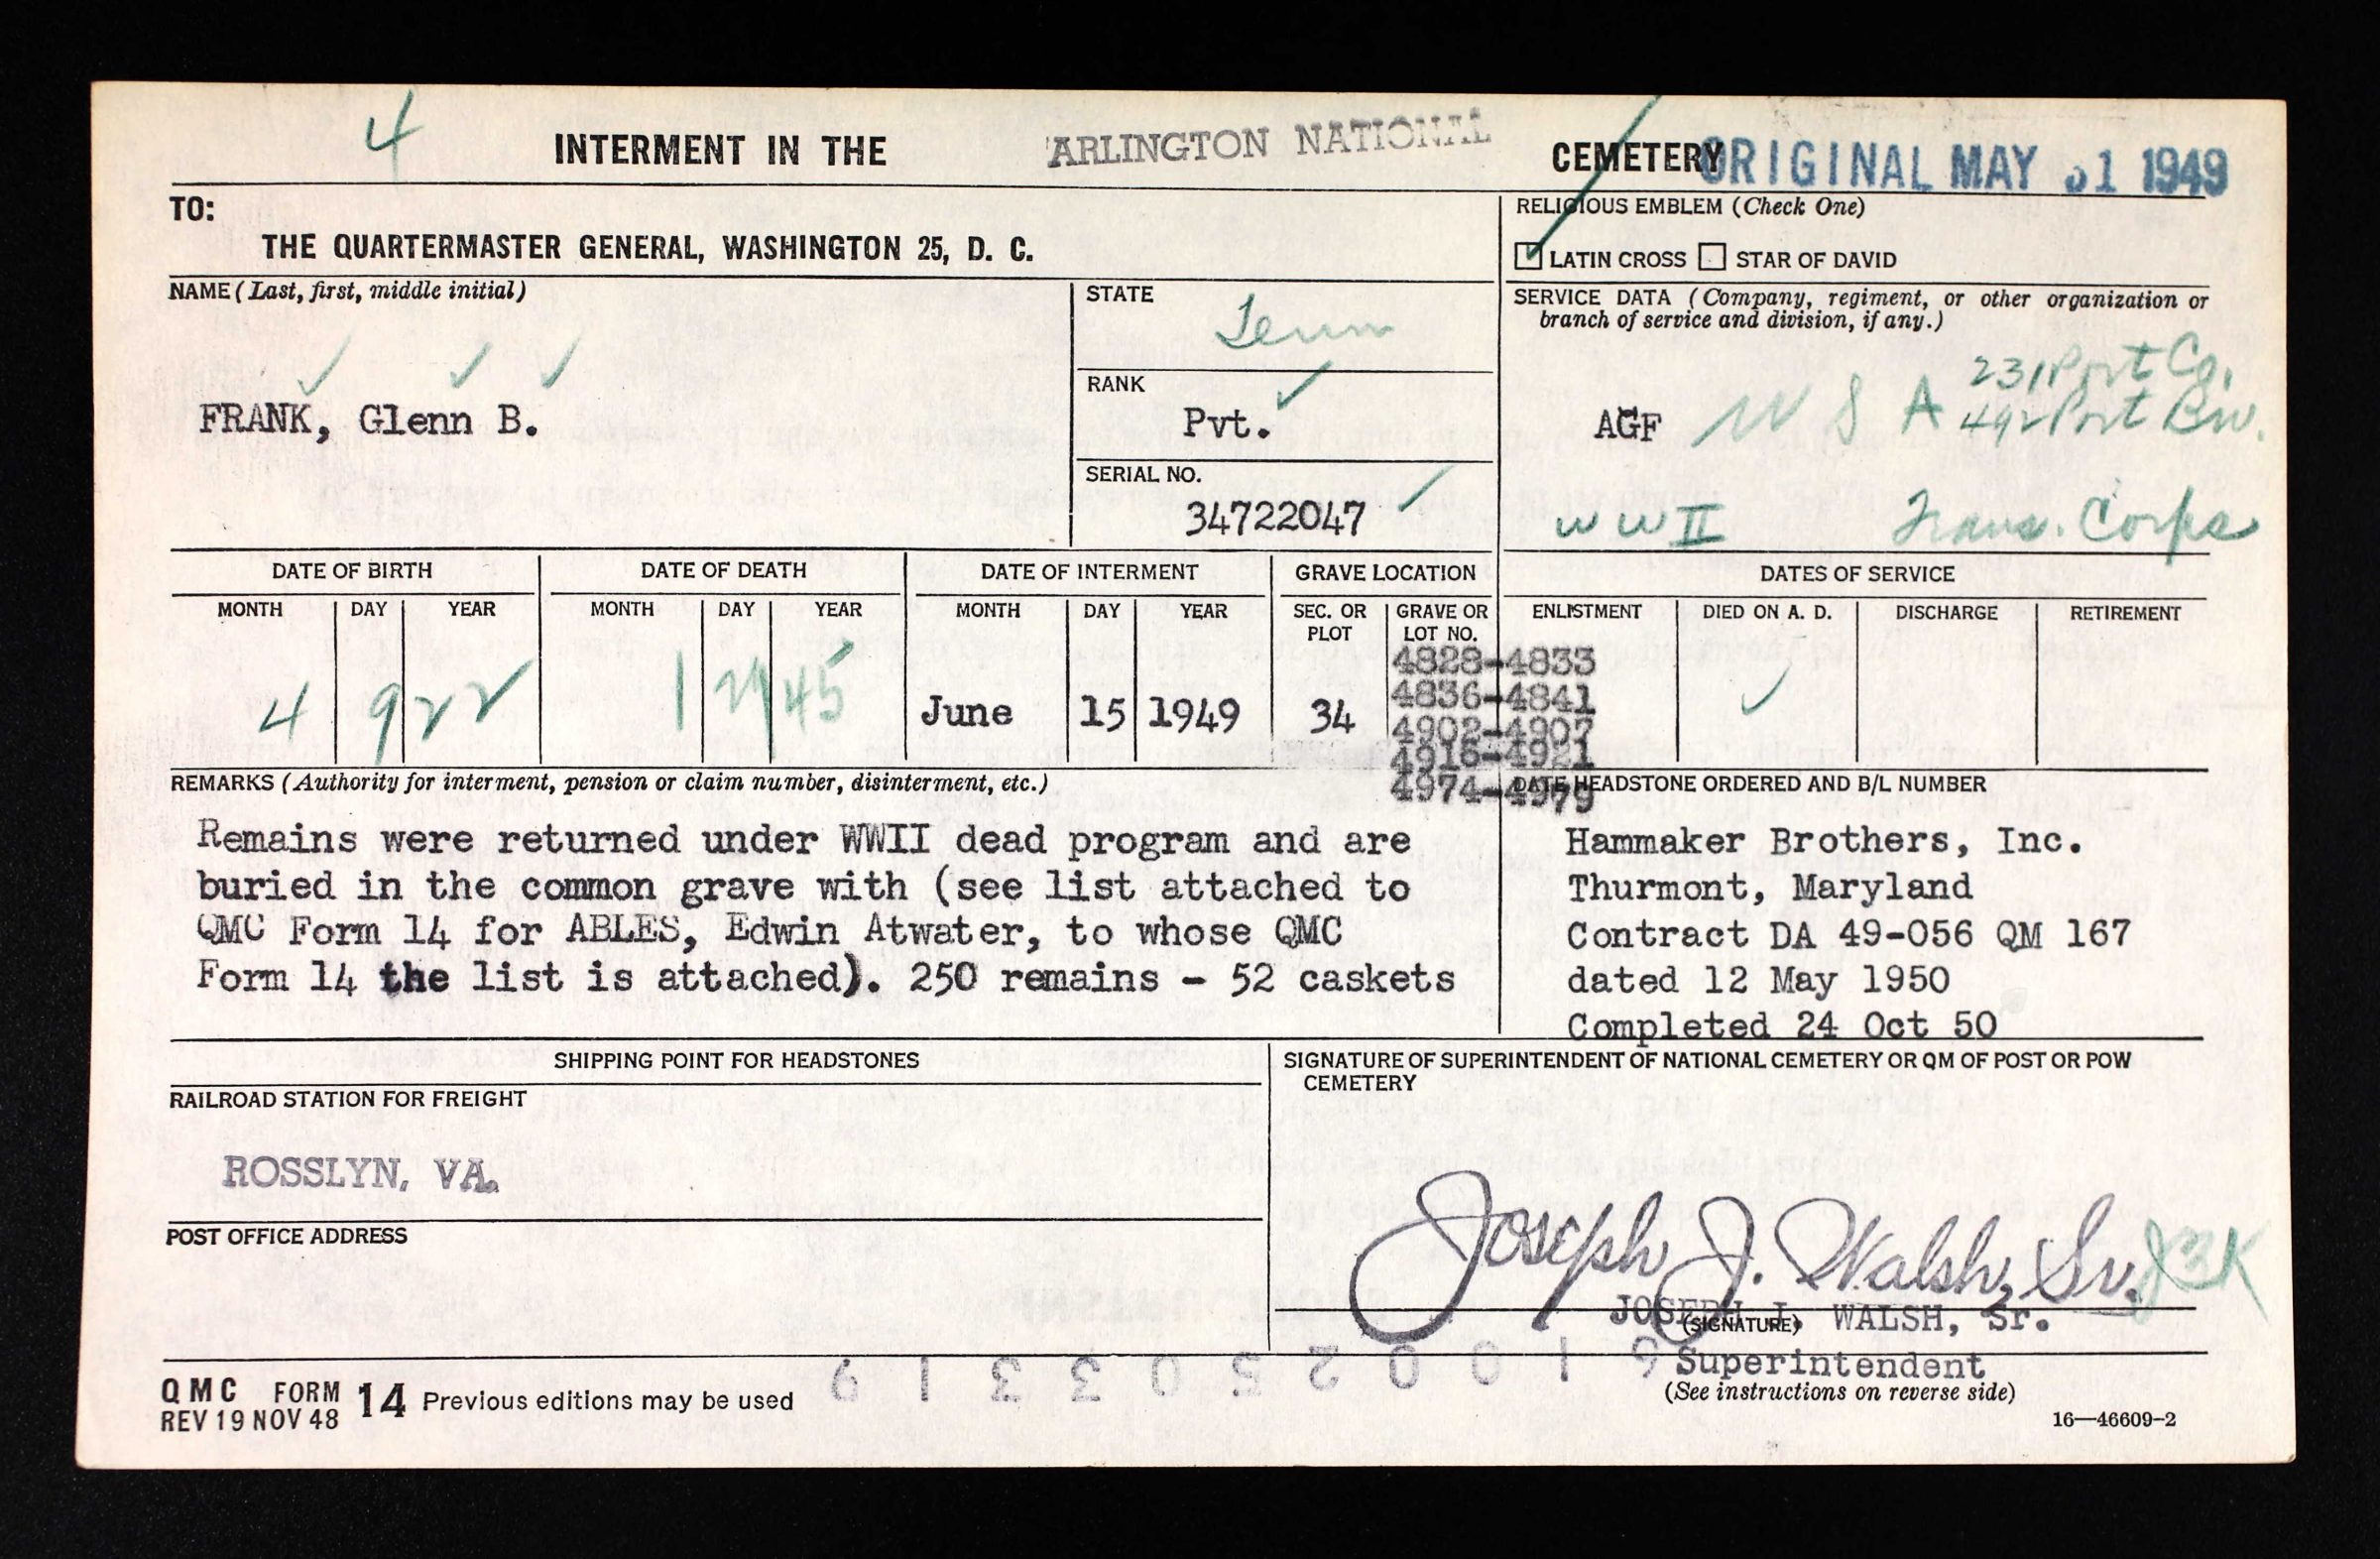 4
INTERMENT IN THE ARLINGTON NATIONAL CEMETERY ORIGINAL MAY 31 1949
TO:
THE QUARTERMASTER GENERAL, WASHINGTON 25, D. C.
RELIGIOUS EMBLEM (Check One)
LATIN CROSS STAR OF DAVID
NAME (Last, first, middle initial)
FRANK, Glenn B.
STATE
Tenn
RANK
Pvt.
SERIAL NO.
34722047
SERVICE DATA (Company, regiment, or other organization or
branch of service and division, if any.)
231 Port Co.
AGF U S A 492 Port Bn.
WW II Trans. Corps
DATE OF BIRTH
MONTH DAY YEAR
4 9 22
DATE OF DEATH
MONTH DAY YEAR
1 45
DATE OF INTERMENT
MONTH DAY YEAR
June 15 1949
GRAVE LOCATION
SEC. OR PLOT
34
GRAVE OR LOT NO.
4828-4833
4836-4841
4902-4907
4916-4921
4974-4979
DATES OF SERVICE
ENLISTMENT DIED ON A. D. DISCHARGE RETIREMENT
REMARKS (Authority for interment, pension or claim number, disinterment, etc.)
Remains were returned under WWII dead program and are
buried in the common grave with (see list attached to
QMC Form 14 for ABLES, Edwin Atwater, to whose QMC
Form 14 the list is attached). 250 remains - 52 caskets
DATE HEADSTONE ORDERED AND B/L NUMBER
Hammaker Brothers, Inc.
Thurmont, Maryland
Contract DA 49-056 QM 167
dated 12 May 1950
Completed 24 Oct 50
SHIPPING POINT FOR HEADSTONES
RAILROAD STATION FOR FREIGHT
ROSSLYN, VA.
POST OFFICE ADDRESS
SIGNATURE OF SUPERINTENDENT OF NATIONAL CEMETERY OR QM OF POST OR POW
CEMETERY
Joseph J. Walsh, Sr.
JOSEPH J. WALSH, Sr.
(SIGNATURE)
Superintendent
(See instructions on reverse side)
QMC FORM 14 Previous editions may be used
REV 19 NOV 48
16—46609-2